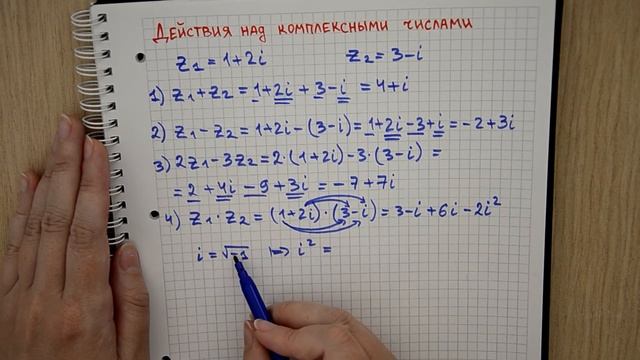 Действия над комплексными числами
z₁=1+2i z₂=3-i
1) z₁+z₂=1+2i+3-i=4+i
2) z₁-z₂=1+2i-(3-i)=1+2i-3+i=-2+3i
3) 2z₁-3z₂=2·(1+2i)-3·(3-i)=
=2+4i-9+3i=-7+7i
4) z₁·z₂=(1+2i)·(3-i)=3-i+6i-2i²
i=√-1 ↦ i²=